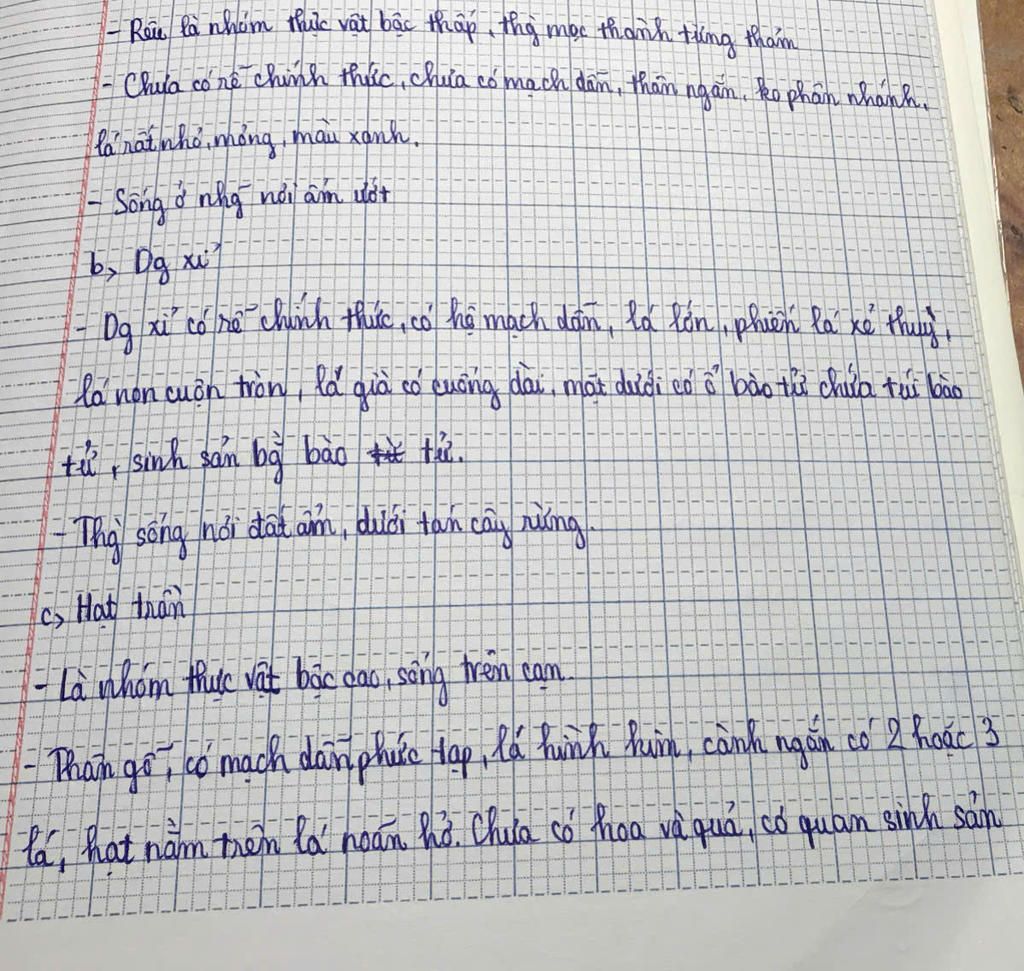 - Rêu là nhóm thực vật bậc thấp, thg mọc thành từng thảm
- Chưa có rễ chính thức, chưa có mạch dẫn, thân ngắn, ko phân nhánh,
lá rất nhỏ, mỏng, màu xanh.
- Sống ở nhg nơi ẩm ướt
b, Dg xỉ
- Dg xỉ có rễ chính thức, có hệ mạch dẫn, lá lớn, phiến lá xẻ thuỳ,
lá non cuộn tròn, lá già có cuống dài, mặt dưới có ổ bào tử chứa túi bào
tử, sinh sản bg bào tử.
- Thg sống nơi đất ẩm, dưới tán cây rừng.
c, Hạt trần
- Là nhóm thực vật bậc cao, sống trên cạn.
- Thân gỗ, có mạch dẫn phức tạp, lá hình kim, cành ngắn có 2 hoặc 3
lá, hạt nằm trên lá noãn hở. Chưa có hoa và quả, cơ quan sinh sản